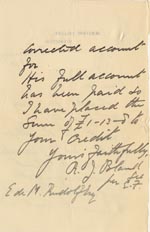 corrected account
for
His full account
has been paid so
I have placed the
Sum of £1-13-8 to
Your Credit
Yours faithfully,
per
E de M. Rudolf Esq